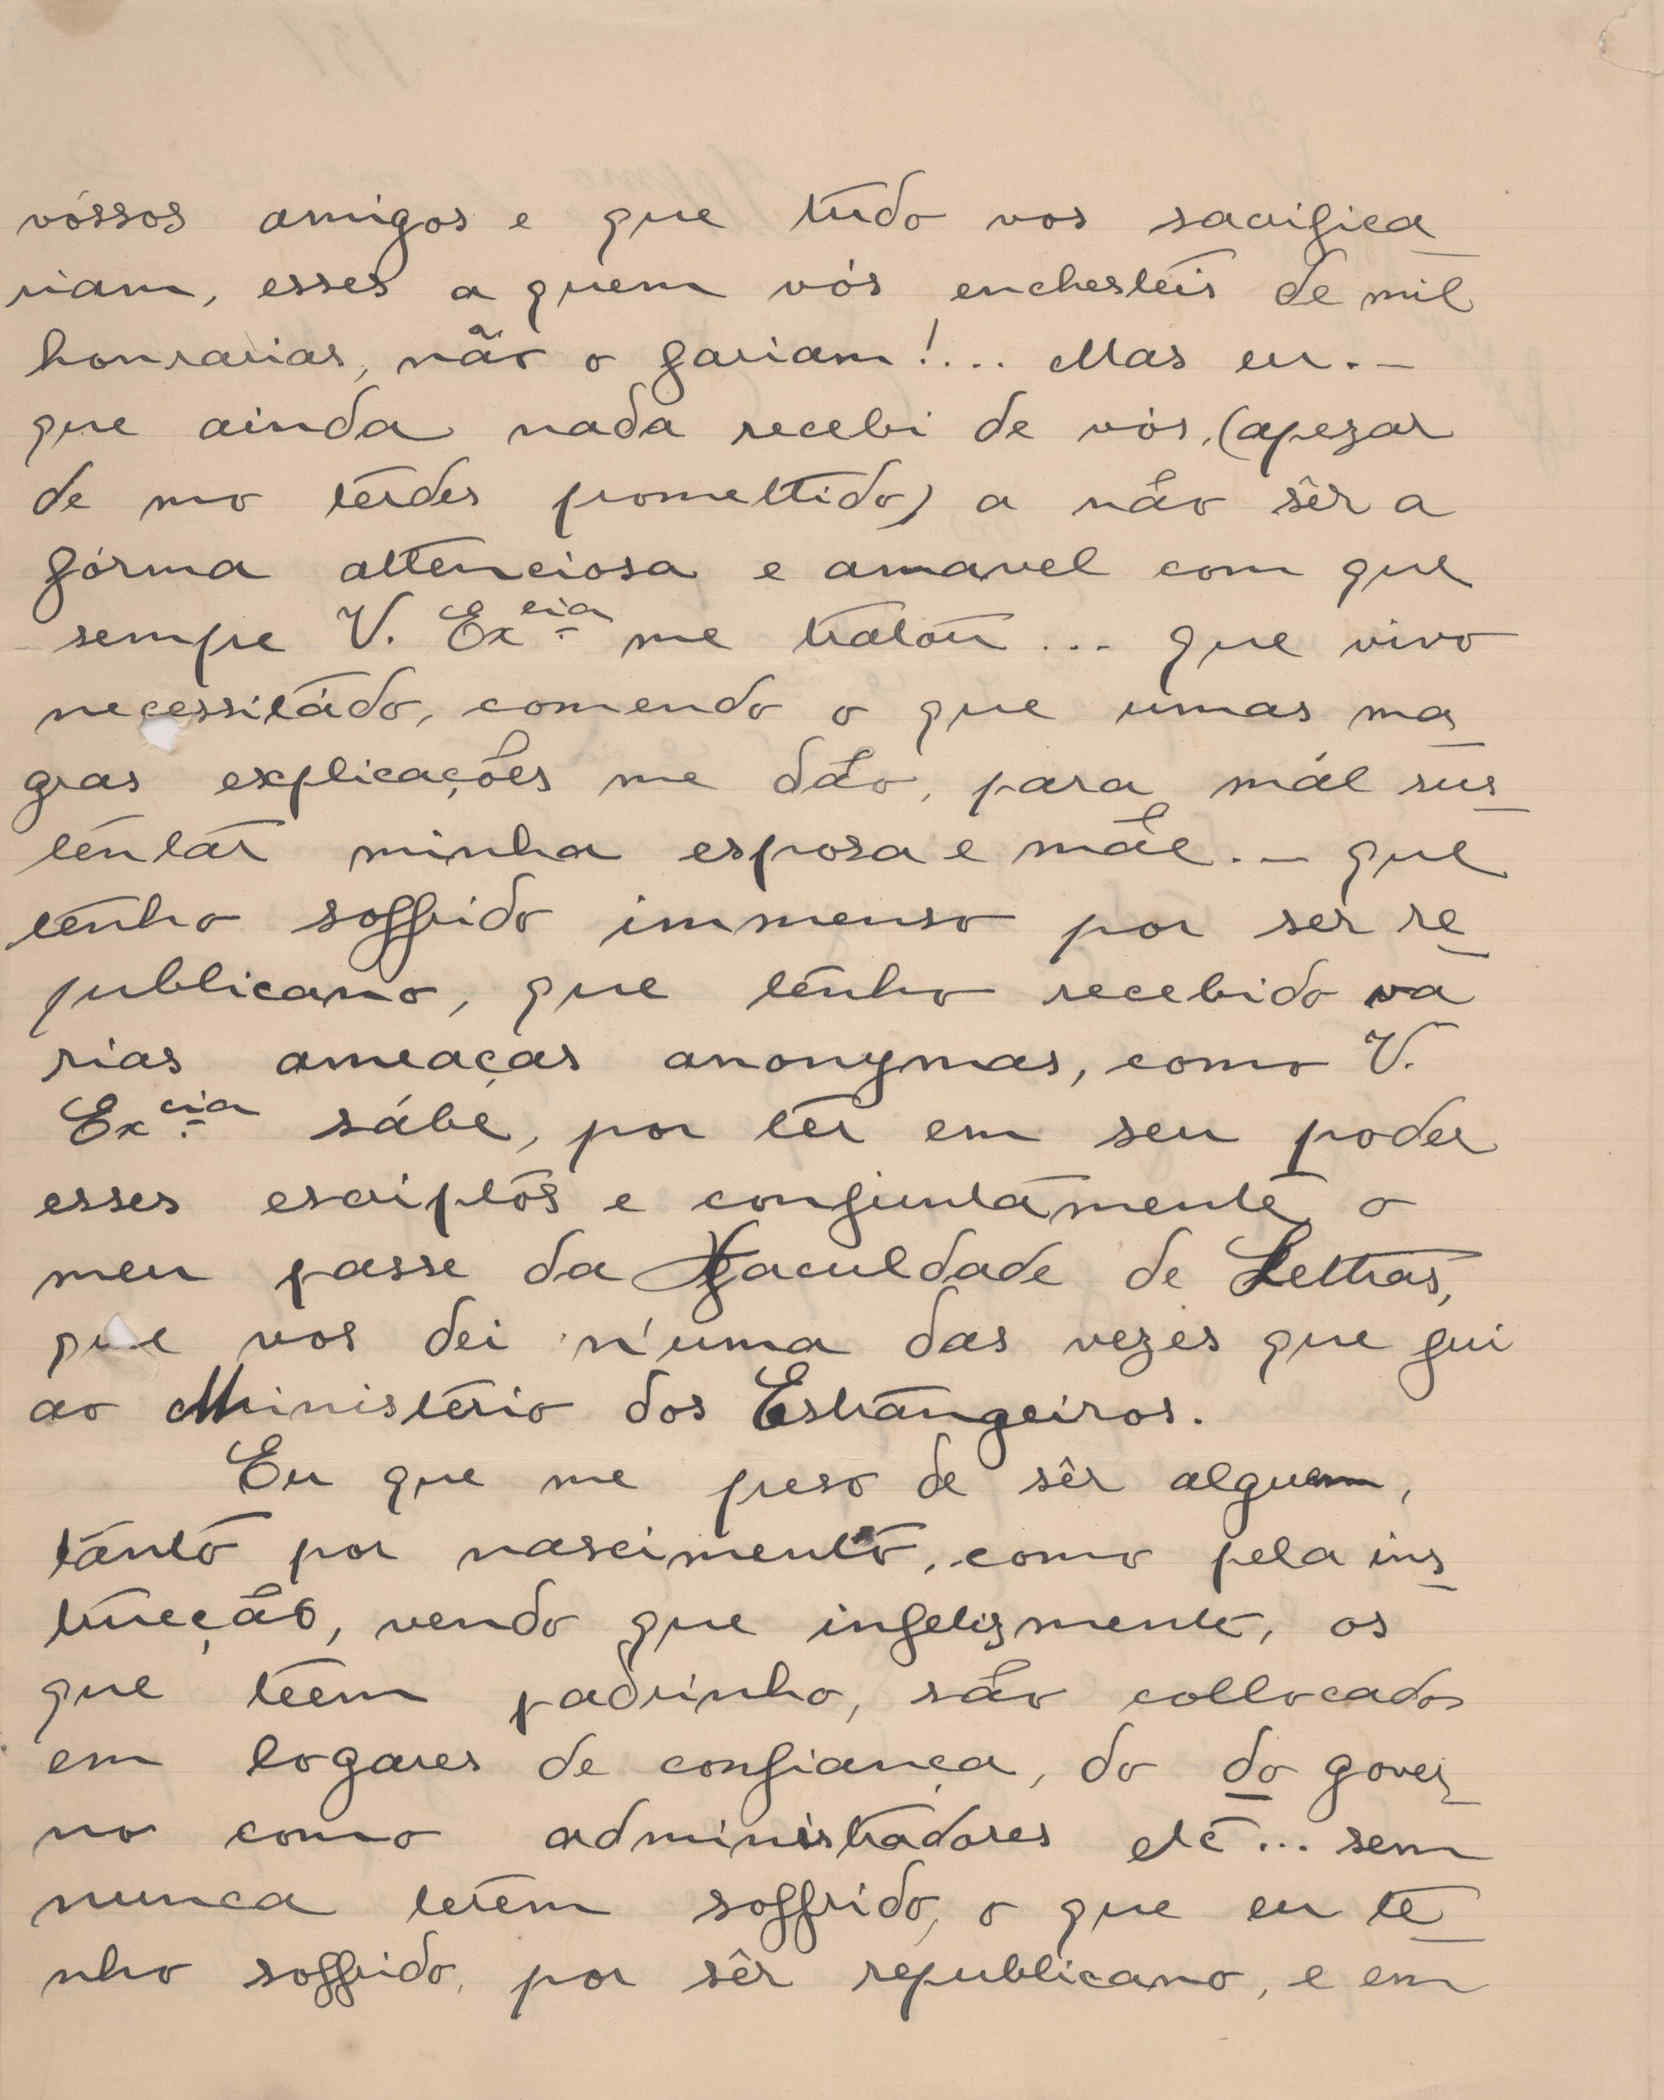 vóssos amigos e que tudo vos sacrifica
riam, esses a quem vós enchesteis de mil
honrarias, não o fariam!... Mas eu. –
que ainda nada recebi de vós, (apezar
de mo terdes promettido) a não sêr a
fórma attenciosa e amavel com que
sempre V. Ex.cia me tratou ... que vivo
necessitádo, comendo o que umas ma
gras explicações me dão, para mál sus
tentar minha esposa e mãe. – que
tenho soffrido immenso por ser re
publicano, que tenho recebido va
rias ameaças anonymas, como V.
Ex.cia sábe, por ter em seu poder
esses escriptos e conjuntamente o
meu passe da Faculdade de Lettras,
que vos dei n'uma das vezes que fui
ao Ministério dos Estrangeiros.
Eu que me preso de sêr alguem,
tanto por nascimento, como pela ins
trucção, vendo que infelizmente, os
que teem padrinho, são collocados
em logares de confiança, do do gover
no como administradores etc... sem
nunca terem soffrido, o que eu te
nho soffrido, por sêr republicano, e em